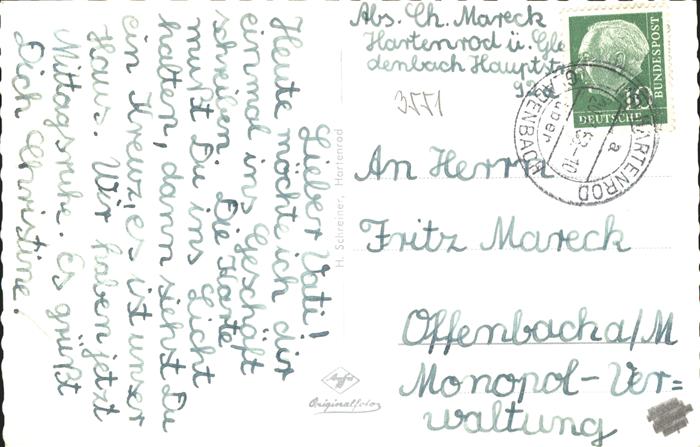 Lieber Vati!
Heute möchte ich dir
einmal ins Geschäft
schreiben. Die Karte
mußt Du ins Licht
halten, dann siehst Du
ein Kreuz, es ist unser
Haus. Wir haben jetzt
Mittagsruhe. Es grüßt
Dich Christine.
H. Schreiner, Hartenrod
Abs. Ch. Mareck
Hartenrod ü. Gla
denbach Hauptstr
92
3551
10
DEUTSCHE
BUNDESPOST
HARTENROD
über
a
An Herrn
Fritz Mareck
Offenbach a/M
Monopol-Ver=
waltung
Agfa
Originalfoto